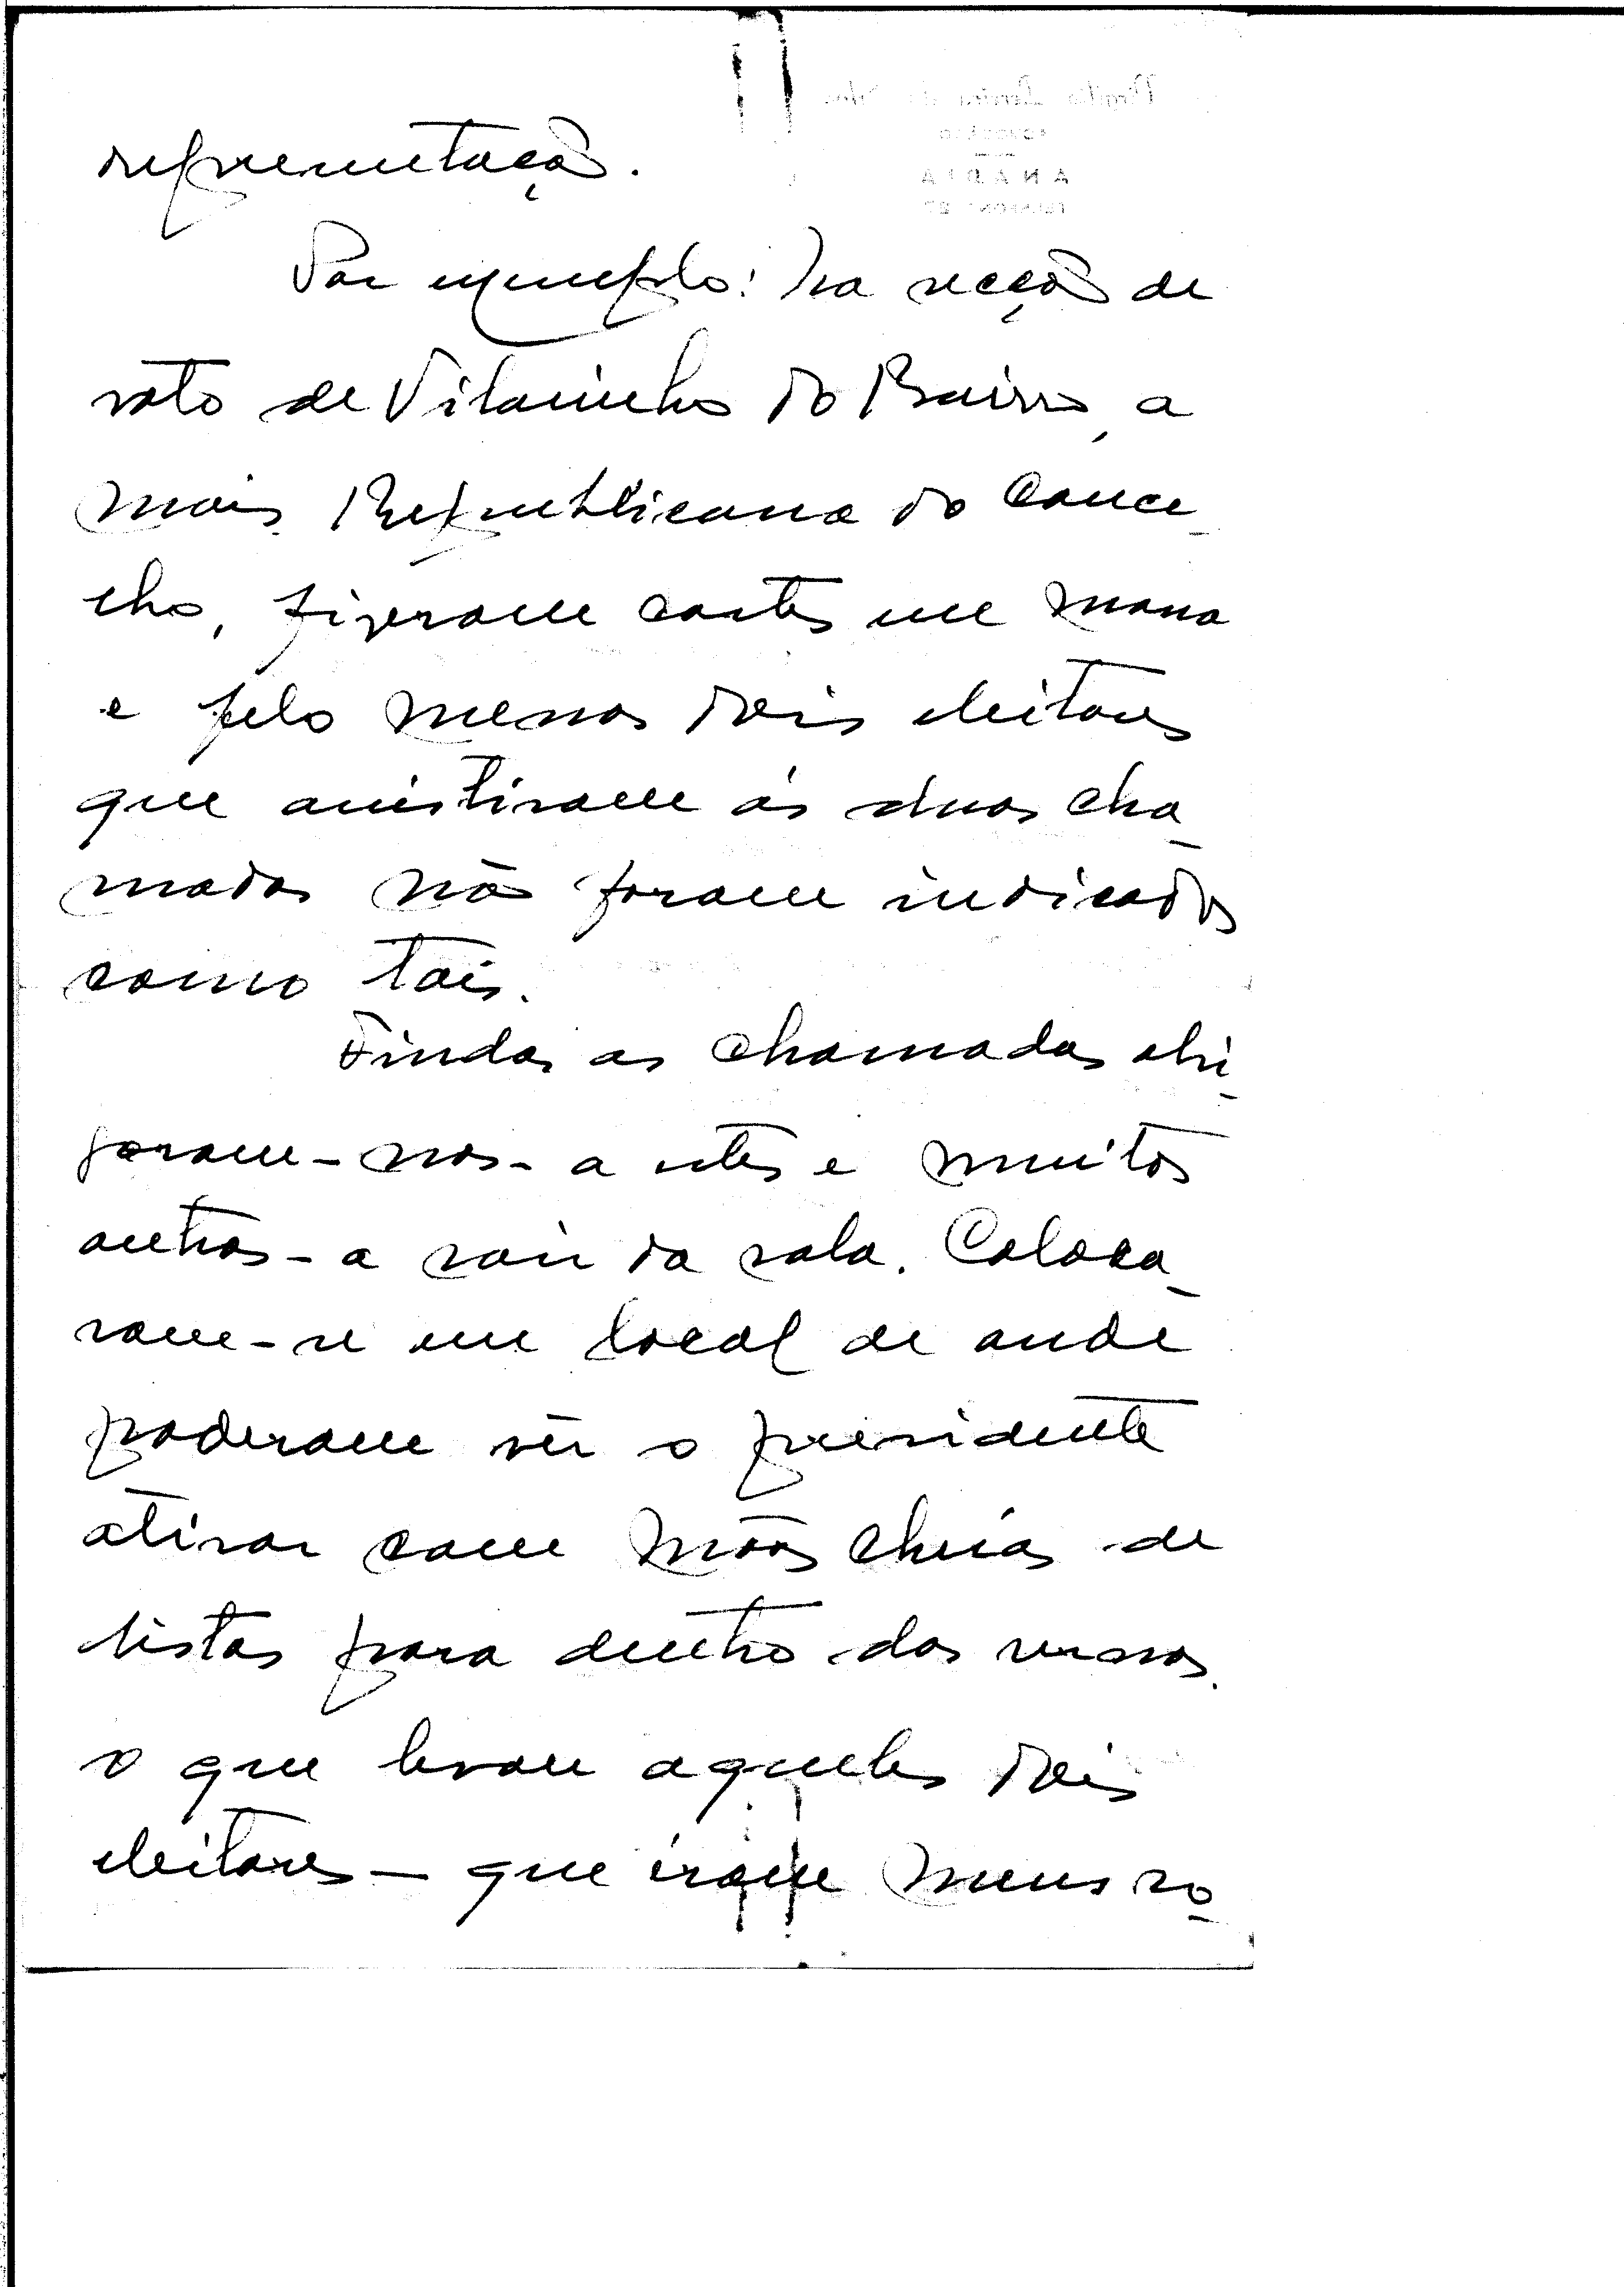 representação.
Por exemplo: na secção de
voto de Vilarinho do Bairro, a
mais Republicana do conce-
lho, fizeram cortes em massa
e pelo menos dois eleitores
que assistiram ás duas cha-
madas não foram indicados
como tais.
Findas as chamadas obri-
garam-nos - a estes e muitos
outros - a sair da sala. Coloca-
ram-se em local de onde
poderam vêr o presidente
atirar com mãos cheias de
listas para dentro das urnas.
O que levou aqueles dois
eleitores — que eram meus
ANADIA